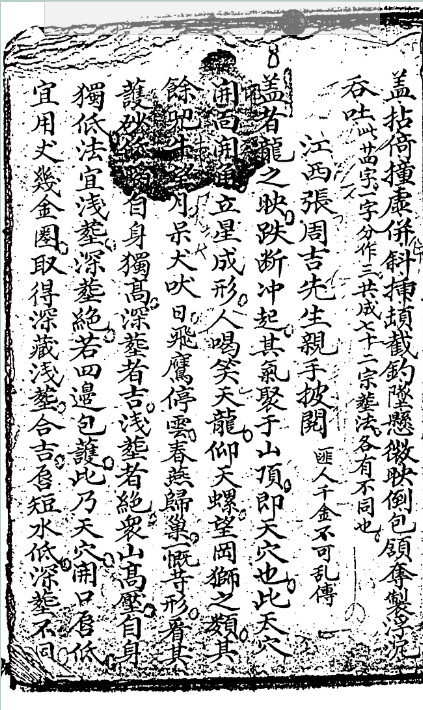 盖拈倚撞 併斜揷 截釣墜懸徵映倒包領奪製浮沉
吞吐此廿四字一字分作三共成七十二宗塟法各有不同也
江西張周吉先生親手披閱 匪人千金不可乱傳
盖者龍之映跌断冲起其氣聚于山頂即天穴也此天穴
開 開 立星成形人喝笑天龍仰天螺望岡獅之類其
餘 月呆犬吠日飛鷹停雲春燕歸巢 等形看其
護砂 自身獨高深塟者吉浅塟者絶衆山高壓自身
獨低法宜浅塟深塟絶若四邉包護此乃天穴開口 低
宜用犬幾金圏取得深藏浅塟合吉 短水低深塟不同